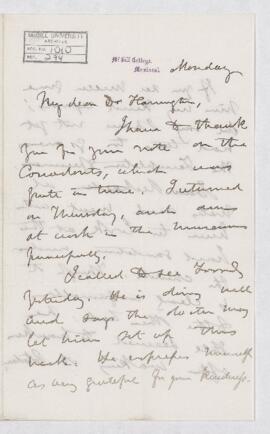 McGILL UNIVERSITY
ARCHIVES
ACC. NO. 1010
REF. 294
McGill College,
Montreal.
Monday
My dear Dr Harrington,
I have to thank
you for your note on the
which was
quite in time. I returned
on Thursday, and am
at work in the museum
peacefully.
I called to see
yesterday. He is doing well
and says the doctor may
let him sit up this
week. He expresses himself
as very grateful for your kindness.